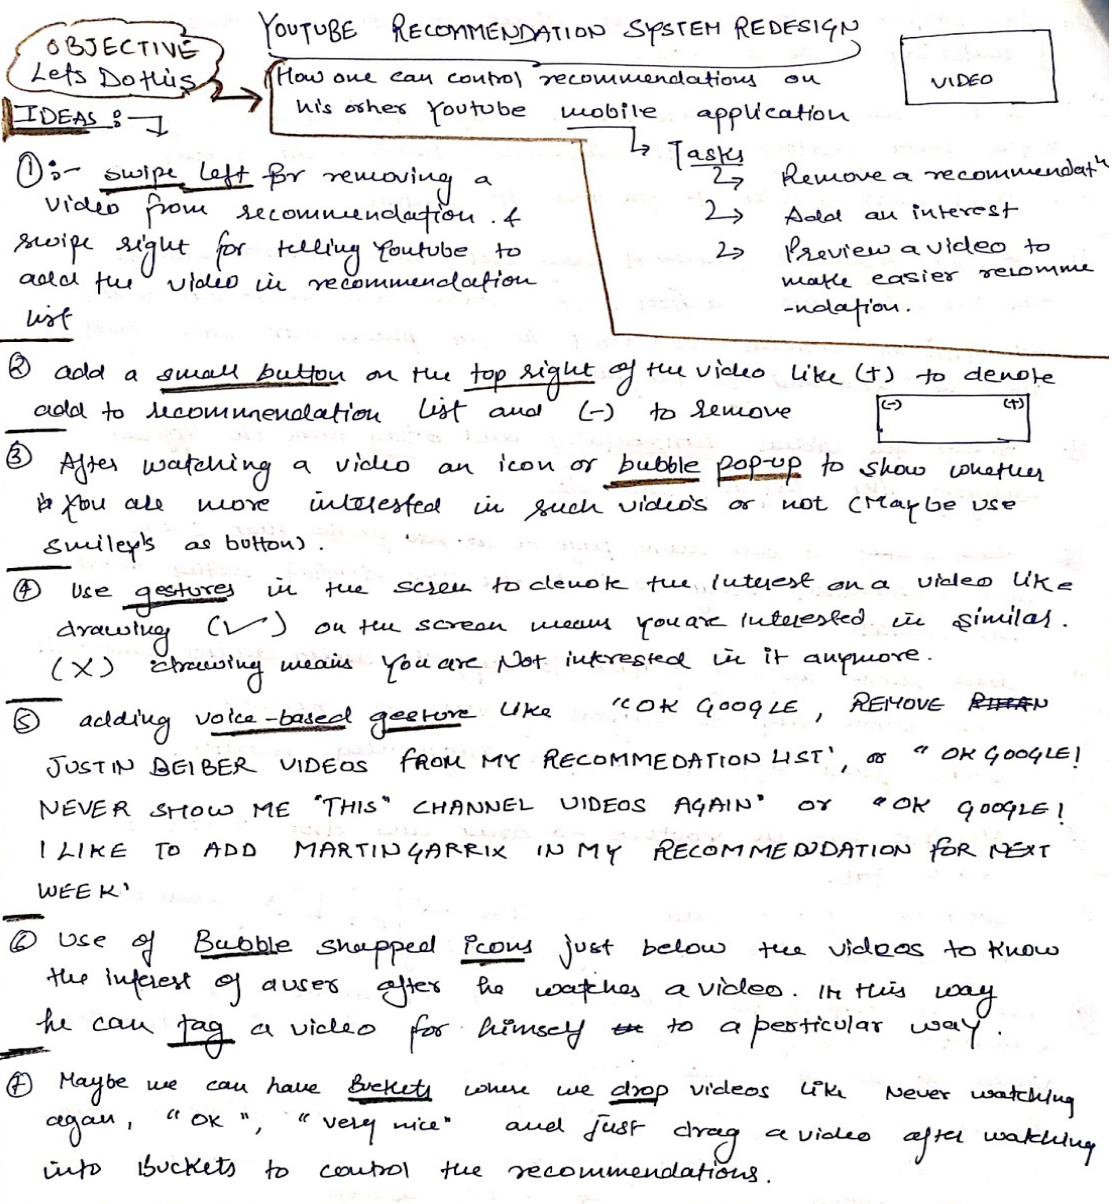 YOUTUBE RECOMMENDATION SYSTEM REDESIGN
OBJECTIVE
Lets Do this
How one can control recommendations on
his other Youtube mobile application
VIDEO
IDEAS :-
Tasks
Remove a recommendatn
Add an interest
Preview a video to
make easier recomme
-ndation.
① :- swipe left for removing a
video from recommendation. &
swipe right for telling Youtube to
add the video in recommendation
list
② add a small button on the top right of the video like (+) to denote
add to recommendation list and (-) to remove
(-) (+)
③ After watching a video an icon or bubble pop-up to show whether
you are more interested in such video's or not (Maybe use
smiley's as button).
④ Use gestures in the screen to denote the interest on a video like
drawing (✓) on the screen means you are interested in similar.
(X) drawing means you are Not intrested in it anymore.
⑤ adding voice-based gesture like "OK GOOGLE, REMOVE
JUSTIN BEIBER VIDEOS FROM MY RECOMMEDATION LIST', or "OK GOOGLE!
NEVER SHOW ME "THIS" CHANNEL VIDEOS AGAIN" or "OK GOOGLE!
I LIKE TO ADD MARTINGARRIX IN MY RECOMMENDATION FOR NEXT
WEEK'
⑥ Use of Bubble shapped icons just below the videos to know
the interest of a user after he watches a video. In this way
he can tag a video for himself to a perticular way.
⑦ Maybe we can have Buckets where we drop videos like Never watching
again, "OK", "very nice" and just drag a video after watching
into Buckets to control the recommendations.